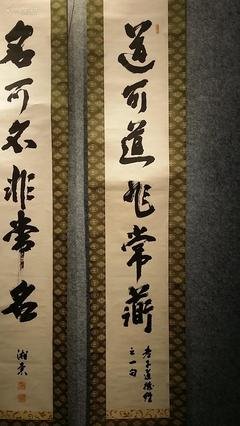 道可道非常道
老子道德經
之一句
名可名非常名